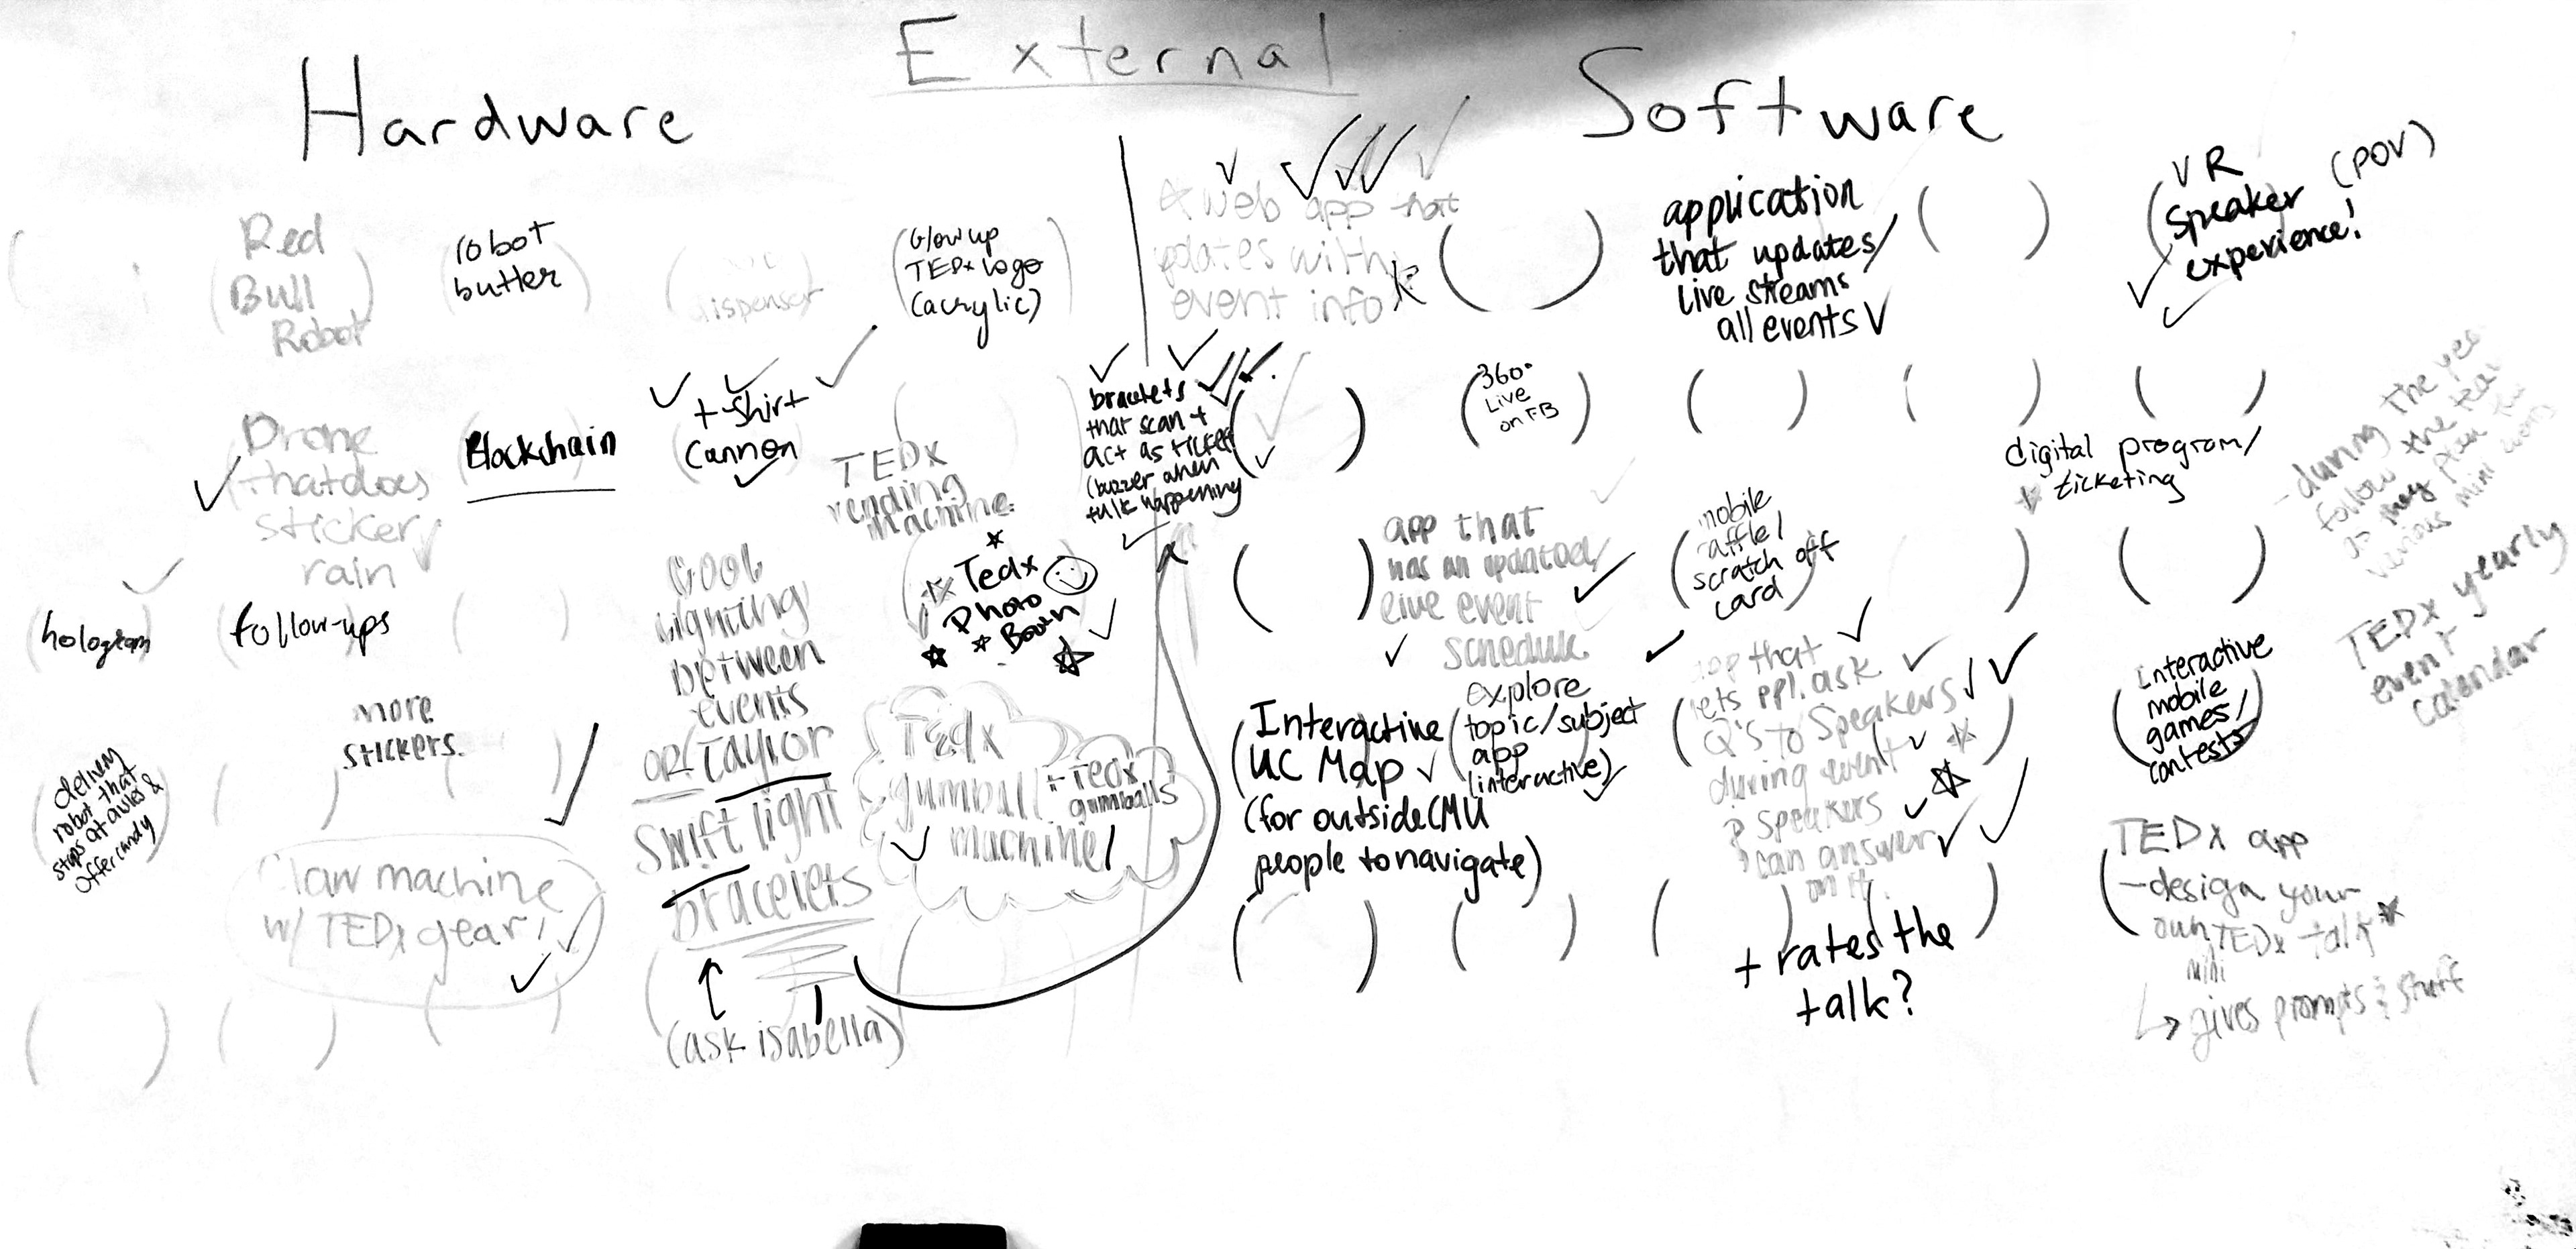 External
Hardware
Software
Red
Bull
Robot
robot
butter
dispenser
Glow up
TEDx logo
(acrylic)
Drone
that does
sticker
rain
Blockchain
t-shirt
cannon
TEDx
vending
machine
bracelets
that scan +
act as ticket
(buzzer when
talk happening
hologram
follow-ups
Cool
lighting
between
events
OR Taylor
Swift light
bracelets
(ask isabella)
Tedx
Photo
Booth
more
stickers
delivery
robot that
stops at aisles &
offer candy
Claw machine
w/ TEDx gear!
Tedx
gumball
machine!
+ Tedx
gumballs
web app that
updates with
event info
application
that updates/
live streams
all events
VR
speaker (POV)
experience!
360°
Live
on FB
digital program/
ticketing
- during the year
follow the team
as they plan the
various mini events
app that
has an updated/
live event
schedule
mobile
raffle/
scratch off
card
TEDx yearly
event
calendar
Interactive
UC Map
(for outside CMU
people to navigate)
explore
topic/subject
app
(interactive)
app that
lets ppl. ask
Q's to Speakers
during event
& speakers
can answer
on it.
+ rates the
talk?
interactive
mobile
games/
contests
TEDx app
- design your
own TEDx talk
mini
↳ gives prompts & stuff